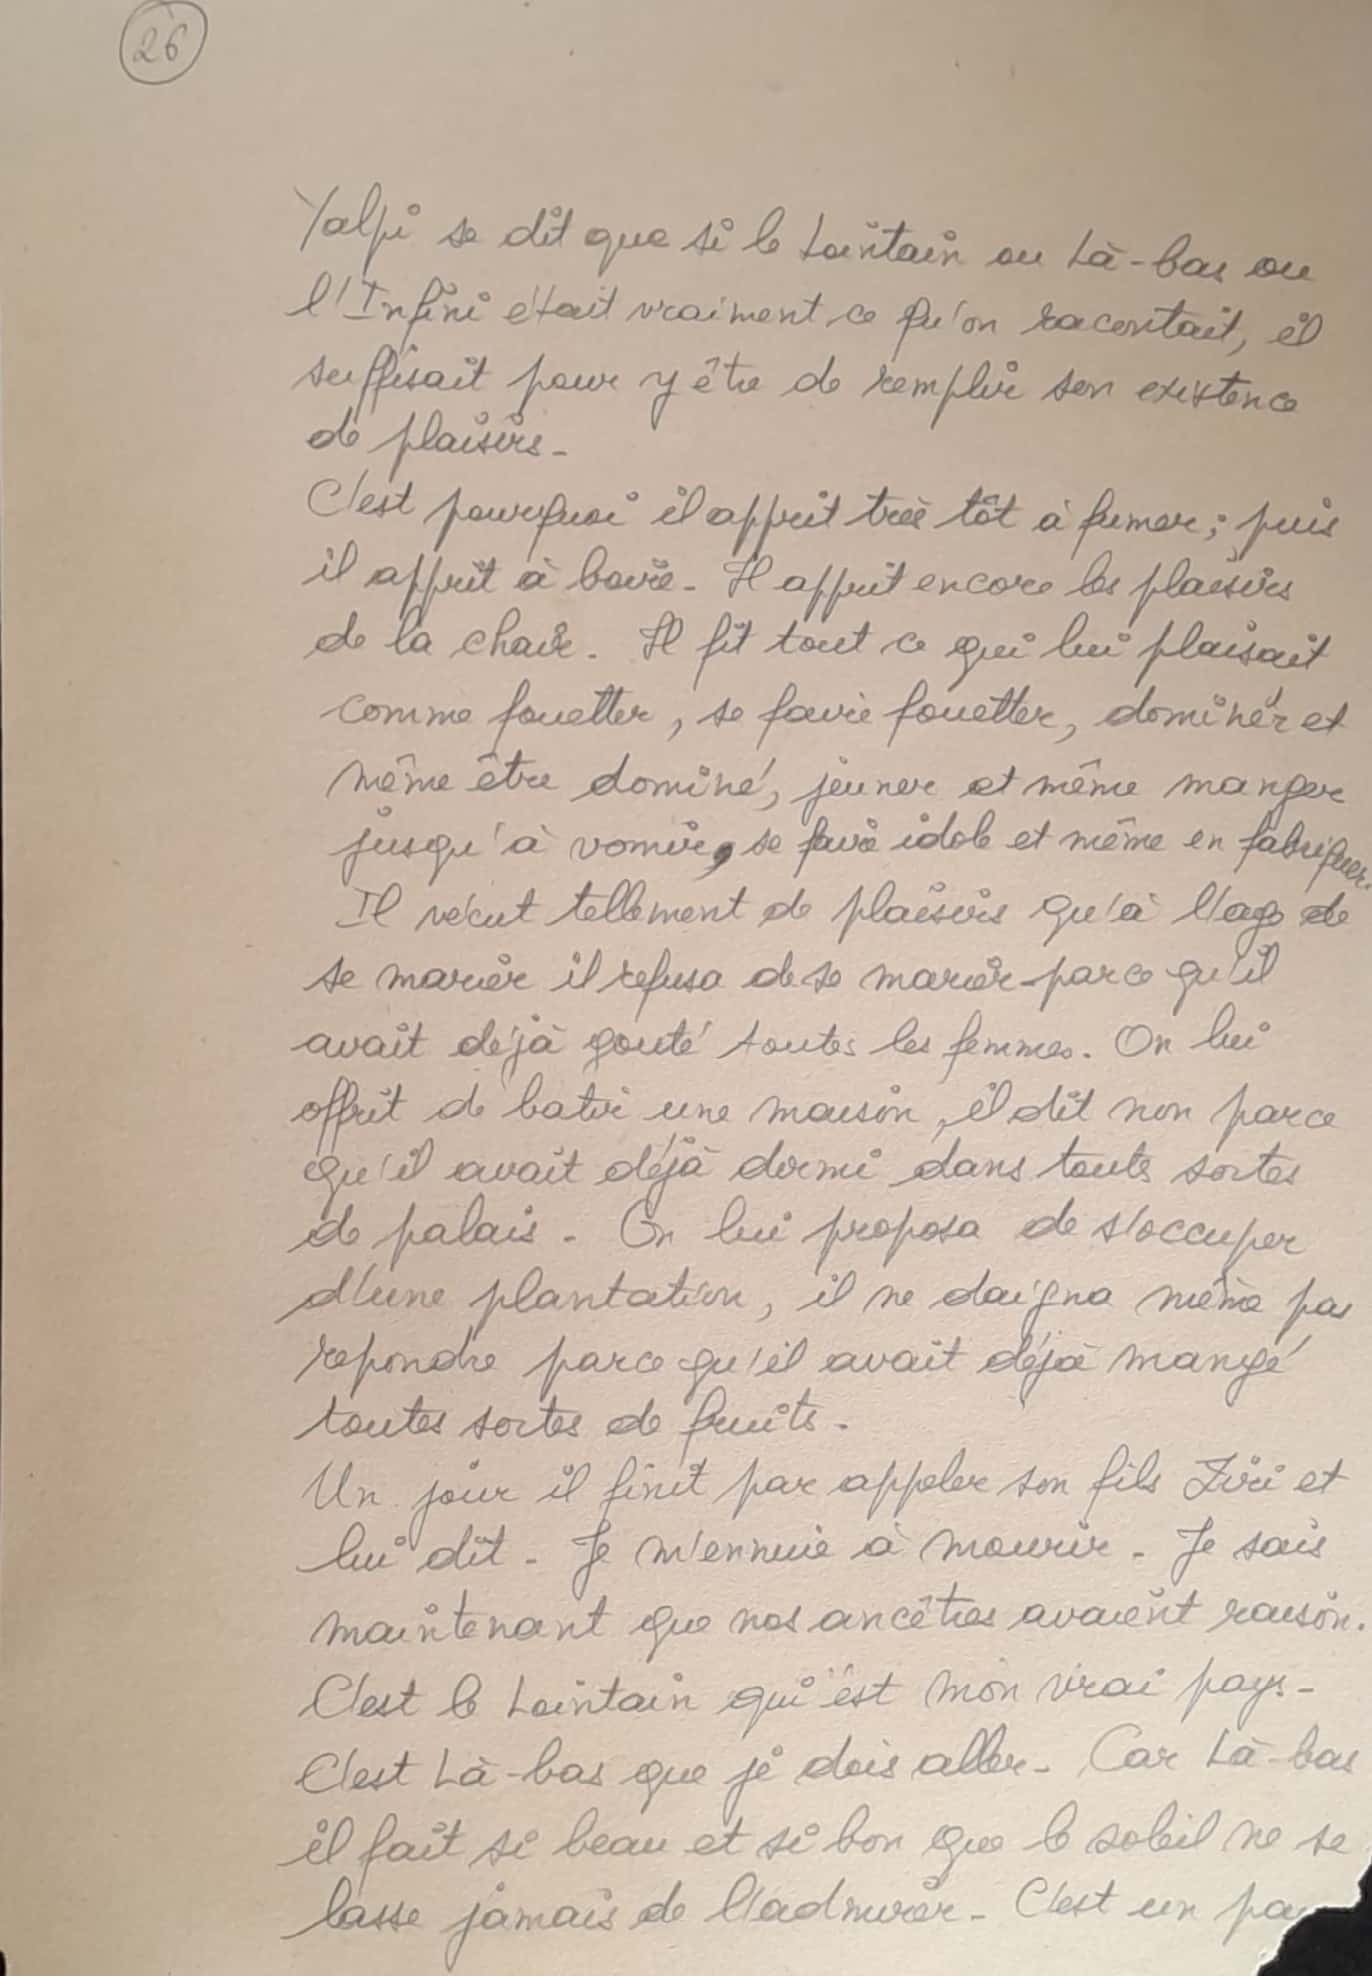 26
Yalpi se dit que si le Lointain ou Là-bas ou
l'Infini était vraiment ce qu'on racontait, il
suffisait pour y être de remplir son existence
de plaisirs.
C'est pourquoi il apprit très tôt à fumer ; puis
il apprit à boire. Il apprit encore les plaisirs
de la chair. Il fit tout ce qui lui plaisait
comme fouetter, se faire fouetter, dominer et
même être dominé, jeuner et même manger
jusqu'à vomir, se faire idole et même en fabriquer.
Il vécut tellement de plaisirs qu'à l'age de
se marier il refusa de se marier parce qu'il
avait déjà gouté toutes les femmes. On lui
offrit de batir une maison, il dit non parce
qu'il avait déjà dormi dans toutes sortes
de palais. On lui proposa de s'occuper
d'une plantation, il ne daigna même pas
repondre parce qu'il avait déjà mangé
toutes sortes de fruits.
Un jour il finit par appeler son fils Ziri et
lui dit. Je m'ennuie à mourir. Je sais
maintenant que nos ancêtres avaient raison.
C'est le Lointain qui est mon vrai pays.
C'est Là-bas que je dois aller. Car Là-bas
il fait si beau et si bon que le soleil ne se
lasse jamais de l'admirer. C'est un